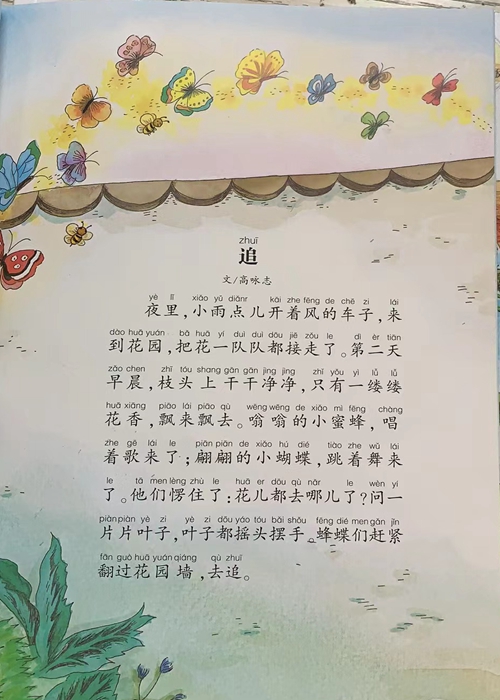 zhuī
追
文/高咏志
yè lǐ xiǎo yǔ diǎnr kāi zhe fēng de chē zi lái
夜里，小雨点儿开着风的车子，来
dào huā yuán bǎ huā yí duì duì dōu jiē zǒu le dì èr tiān
到花园，把花一队队都接走了。第二天
zǎo chen zhī tóu shang gān gān jìng jìng zhǐ yǒu yì lǚ lǚ
早晨，枝头上干干净净，只有一缕缕
huā xiāng piāo lái piāo qù wēng wēng de xiǎo mì fēng chàng
花香，飘来飘去。嗡嗡的小蜜蜂，唱
zhe gē lái le piān piān de xiǎo hú dié tiào zhe wǔ lái
着歌来了；翩翩的小蝴蝶，跳着舞来
le tā men lèng zhù le huā er dōu qù nǎr le wèn yi
了。他们愣住了：花儿都去哪儿了？问一
piàn piàn yè zi yè zi dōu yáo tóu bǎi shǒu fēng dié men gǎn jǐn
片片叶子，叶子都摇头摆手。蜂蝶们赶紧
fān guò huā yuán qiáng qù zhuī
翻过花园墙，去追。